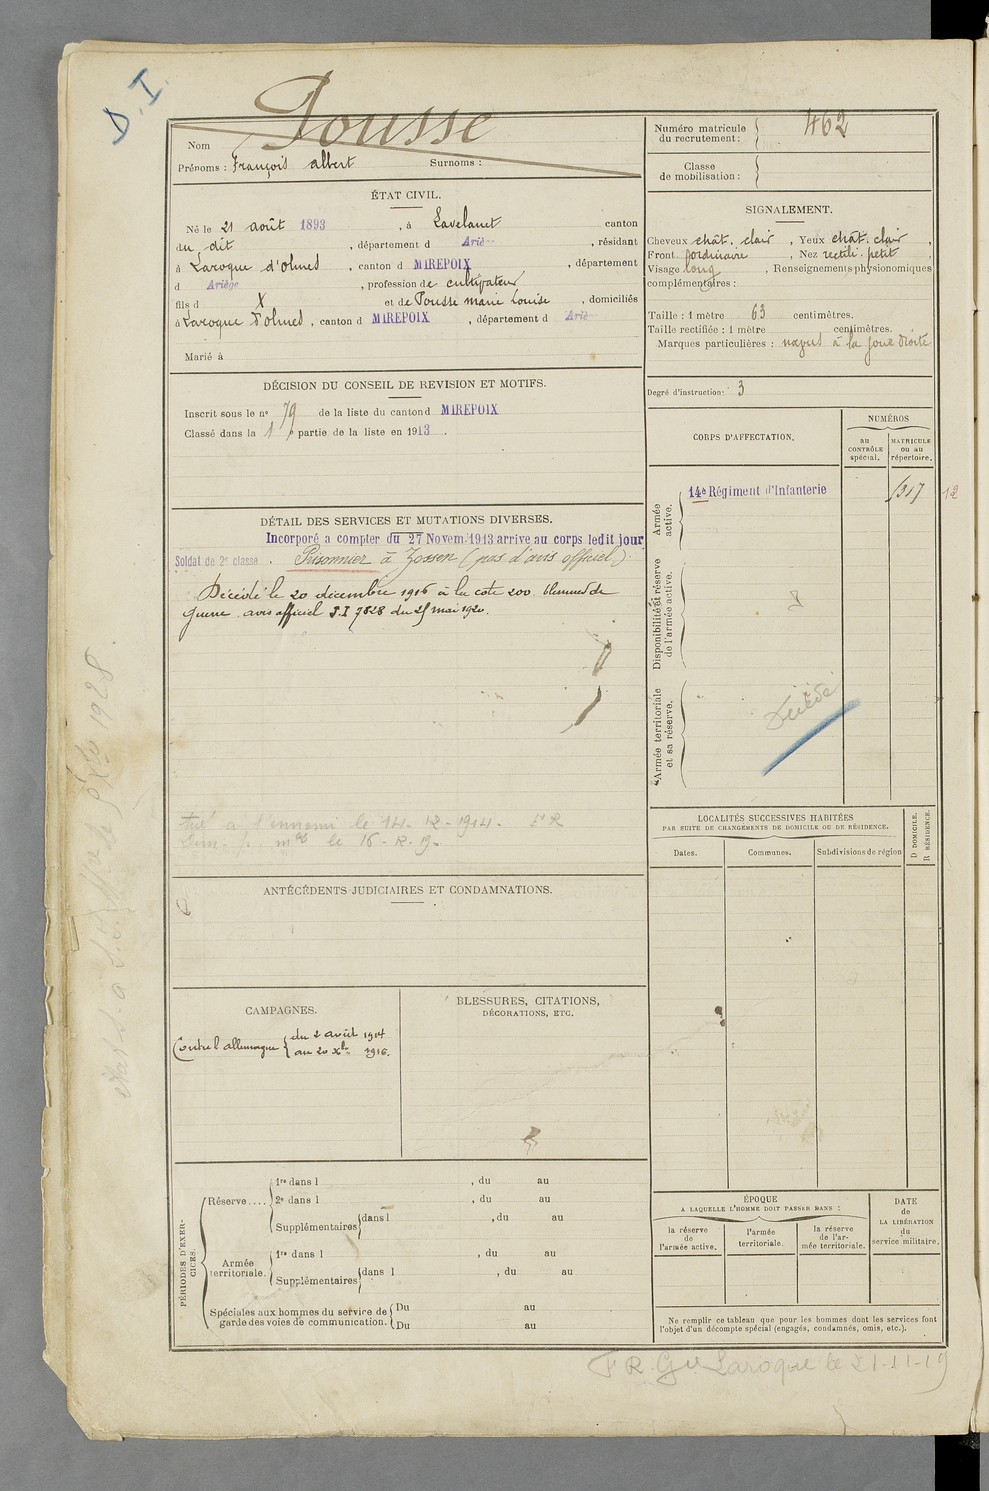 D.I.
Pousse
Nom
Prénoms : François albert Surnoms :
Numéro matricule du recrutement : 462
Classe de mobilisation :
ÉTAT CIVIL.
Né le 21 août 1893, à Lavelanet canton
du dit, département d Ariège, résidant
à Laroque d'olmes, canton d MIREPOIX, département
d Ariège, profession de cultivateur
fils d X et de Pousse marie Louise, domiciliés
à Laroque d'olmes, canton d MIREPOIX, département d Ariè
Marié à
SIGNALEMENT.
Cheveux chât. clair, Yeux chât. clair,
Front ordinaire, Nez rectili. petit,
Visage long, Renseignements physionomiques
complémentaires :
Taille : 1 mètre 63 centimètres.
Taille rectifiée : 1 mètre centimètres.
Marques particulières : nævus à la joue droite
Degré d'instruction : 3
DÉCISION DU CONSEIL DE REVISION ET MOTIFS.
Inscrit sous le nº 79 de la liste du canton d MIREPOIX
Classé dans la 1 partie de la liste en 1913.
CORPS D'AFFECTATION.
NUMÉROS
au CONTRÔLE spécial.
MATRICULE ou au répertoire.
Armée active.
14e Régiment d'Infanterie
1317
12
Disponibilité et réserve de l'armée active.
Armée territoriale et sa réserve.
Décédé
DÉTAIL DES SERVICES ET MUTATIONS DIVERSES.
Incorporé a compter du 27 Novem. 1913 arrive au corps ledit jour
Soldat de 2e classe. Prisonnier à Zossen (pas d'avis officiel)
Décédé le 20 décembre 1916 à la côte 200. blessures de
guerre. avis officiel S.I 7828 du 25 mai 1920.
tué à l'ennemi le 14-12-1914. F R
le 16-2-19.
LOCALITÉS SUCCESSIVES HABITÉES
PAR SUITE DE CHANGEMENTS DE DOMICILE OU DE RÉSIDENCE.
Dates.
Communes.
Subdivisions de région
D DOMICILE.
R RÉSIDENCE.
ANTÉCÉDENTS JUDICIAIRES ET CONDAMNATIONS.
CAMPAGNES.
Contre l'allemagne { du 2 août 1914
au 20 Xbre 1916.
BLESSURES, CITATIONS,
DÉCORATIONS, ETC.
PÉRIODES D'EXERCICES.
Réserve....
1re dans l , du au
2e dans l , du au
Supplémentaires dans l , du au
Armée territoriale.
1re dans l , du au
Supplémentaires dans l , du au
Spéciales aux hommes du service de
garde des voies de communication.
Du au
Du au
ÉPOQUE
A LAQUELLE L'HOMME DOIT PASSER DANS :
la réserve de l'armée active.
l'armée territoriale.
la réserve de l'armée territoriale.
DATE de LA LIBÉRATION du service militaire.
Ne remplir ce tableau que pour les hommes dont les services font
l'objet d'un décompte spécial (engagés, condamnés, omis, etc.).
F R. Gie Laroque le 21-11-19